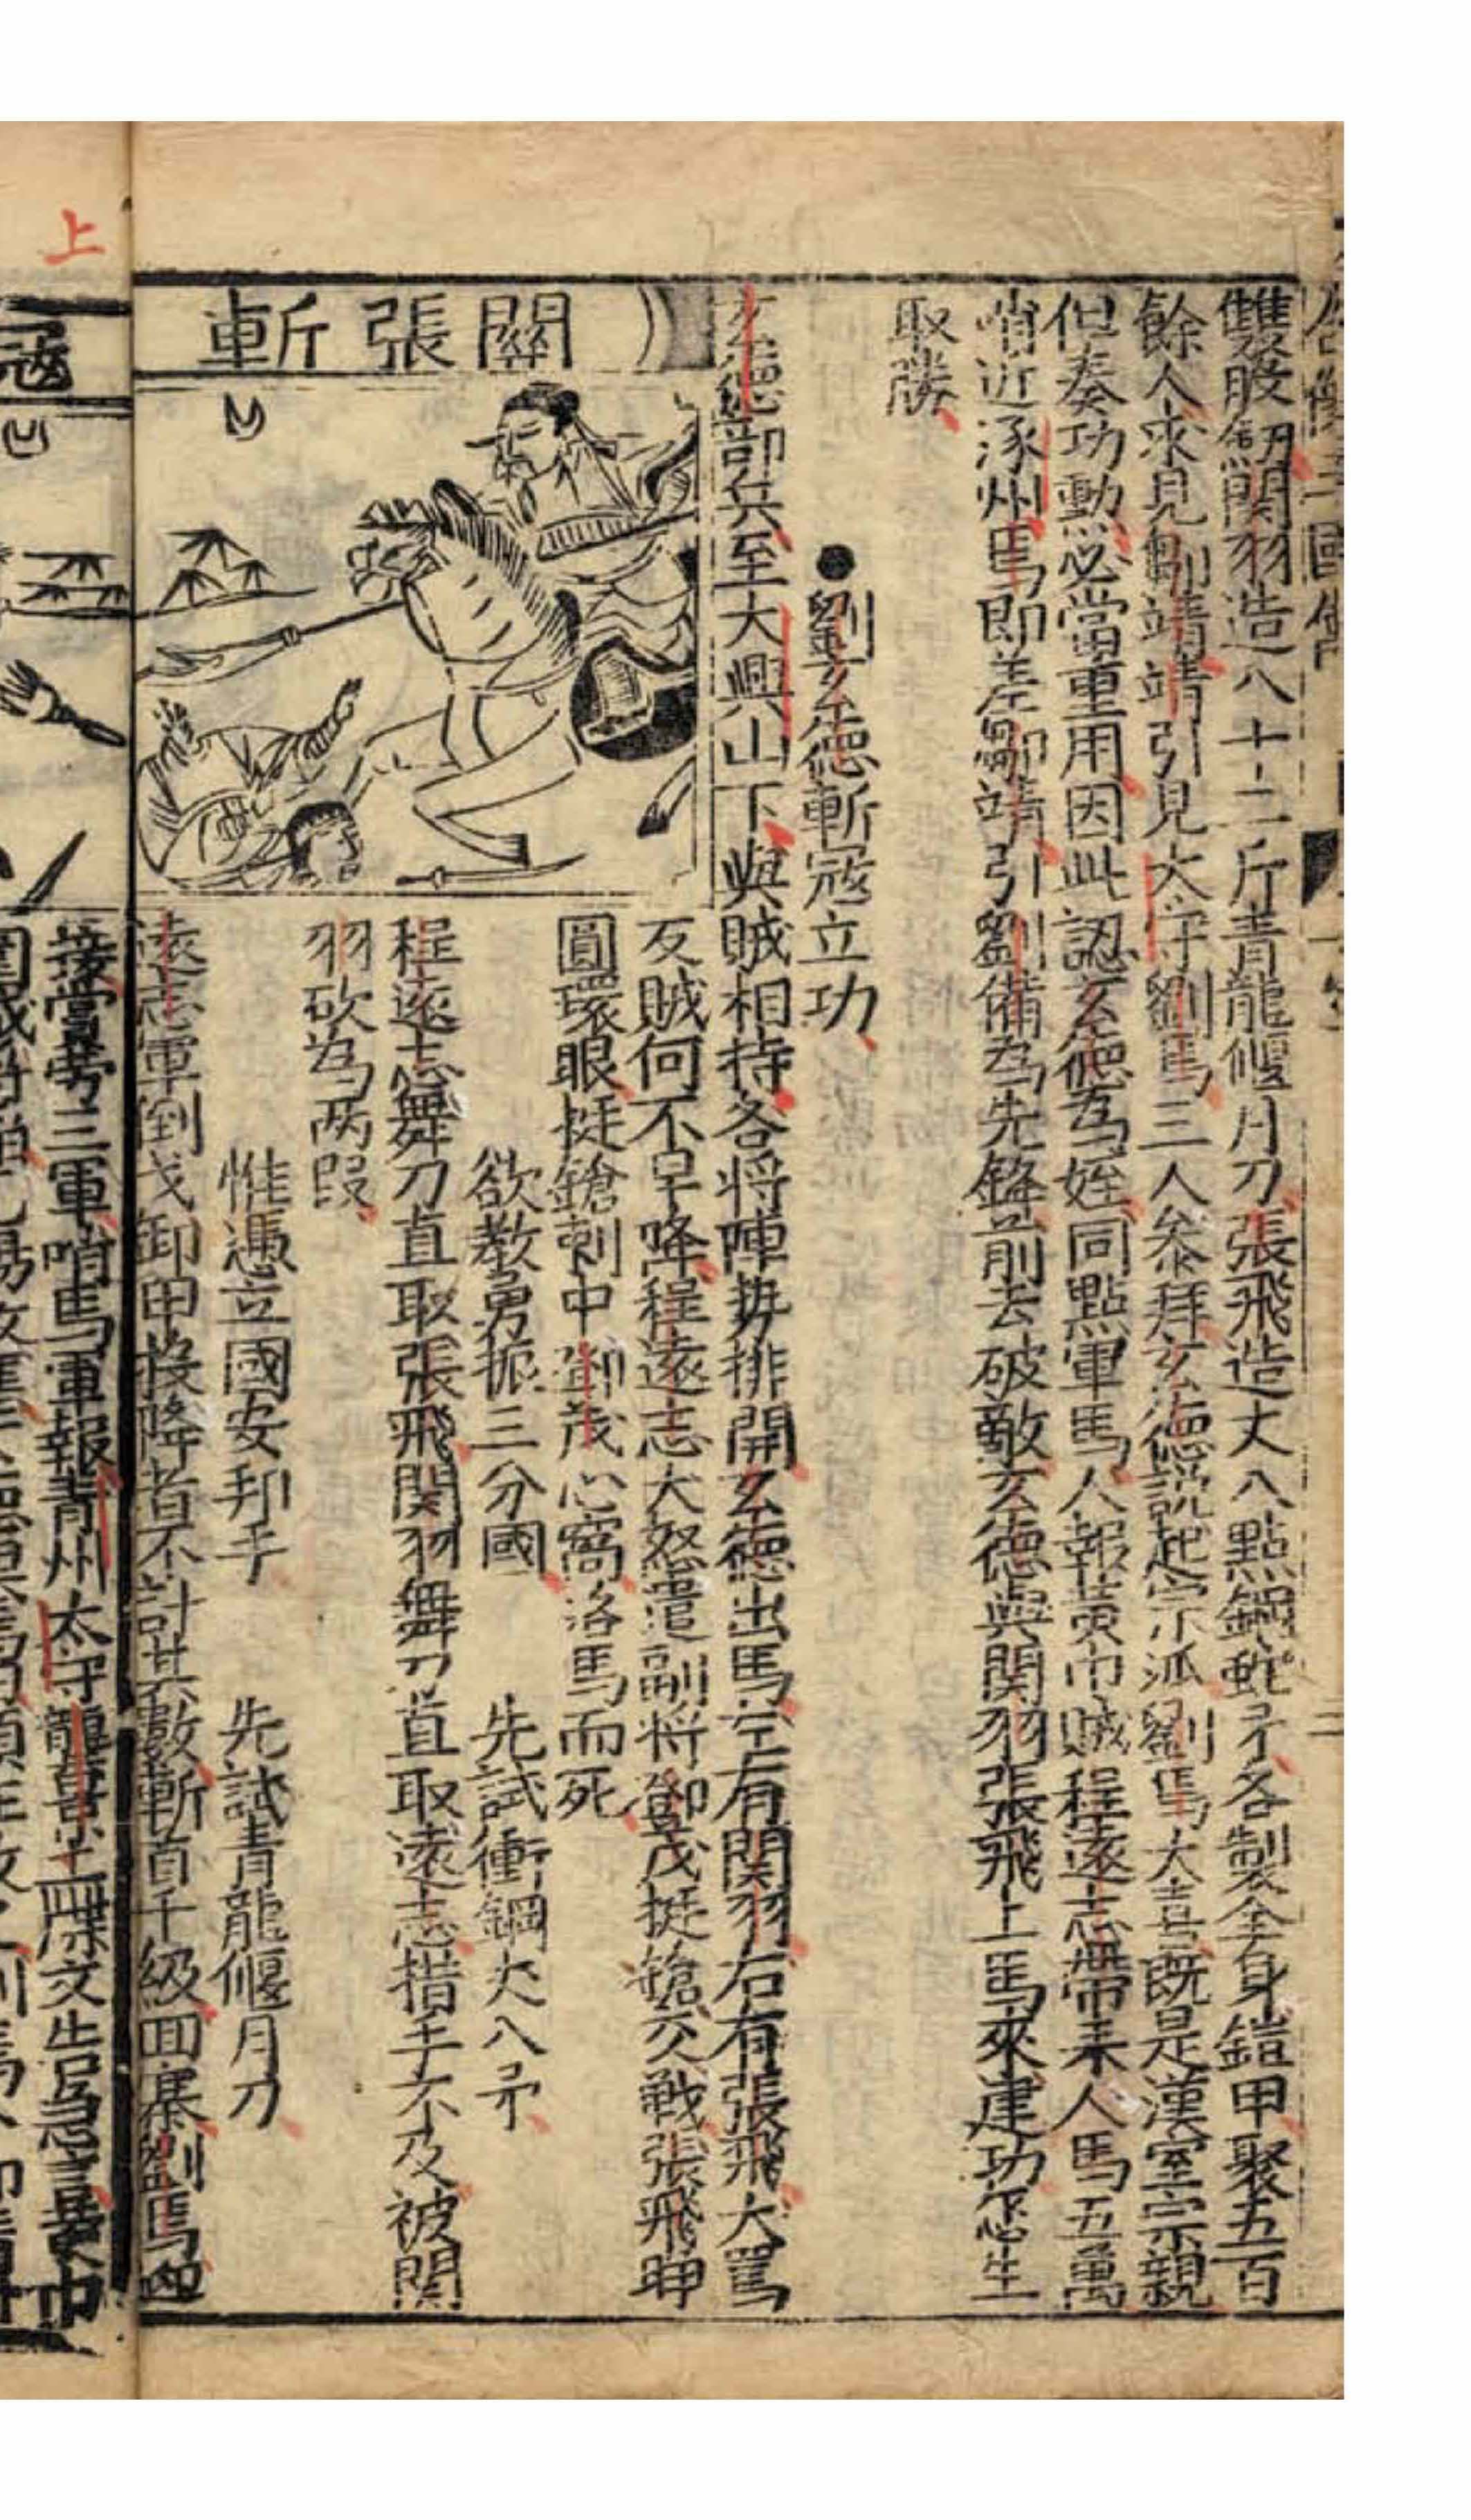 雙股劒関羽造八十二斤青龍偃月刀張飛造丈八點鋼蛇矛各製全身鎧甲聚五百
餘人求見鄒靖靖引見太守劉焉三人叅拜玄德説起宗派劉焉大喜既是漢室宗親
但奏功勳必當重用因此認玄德為姪同點軍馬人報黄巾賊程遠志帶来人馬五萬
哨近涿州焉即差鄒靖引劉備為先鋒前去破敵玄德與関羽張飛上馬來建功怎生
取勝
●劉玄德斬冦立功
玄德部兵至大興山下與賊相持各将陣势排開玄德出馬左有関羽右有張飛大罵
反賊何不早降程遠志大怒遣副将鄧茂挺鎗交戰張飛睁
圓環眼挺鎗刺中鄧茂心窩落馬而死
欲教勇振三分國 先試衝鋼丈八矛
程遠志舞刀直取張飛関羽舞刀直取遠志措手不及被関
羽砍為两段
惟憑立國安邦手 先試青龍偃月刀
遠志軍倒戈卸甲投降者不計其數斬首千級囬寨劉焉迎
關張斬
上
冦
接賞劳三軍哨馬軍報青州太守龔景上牒文告急言黄巾